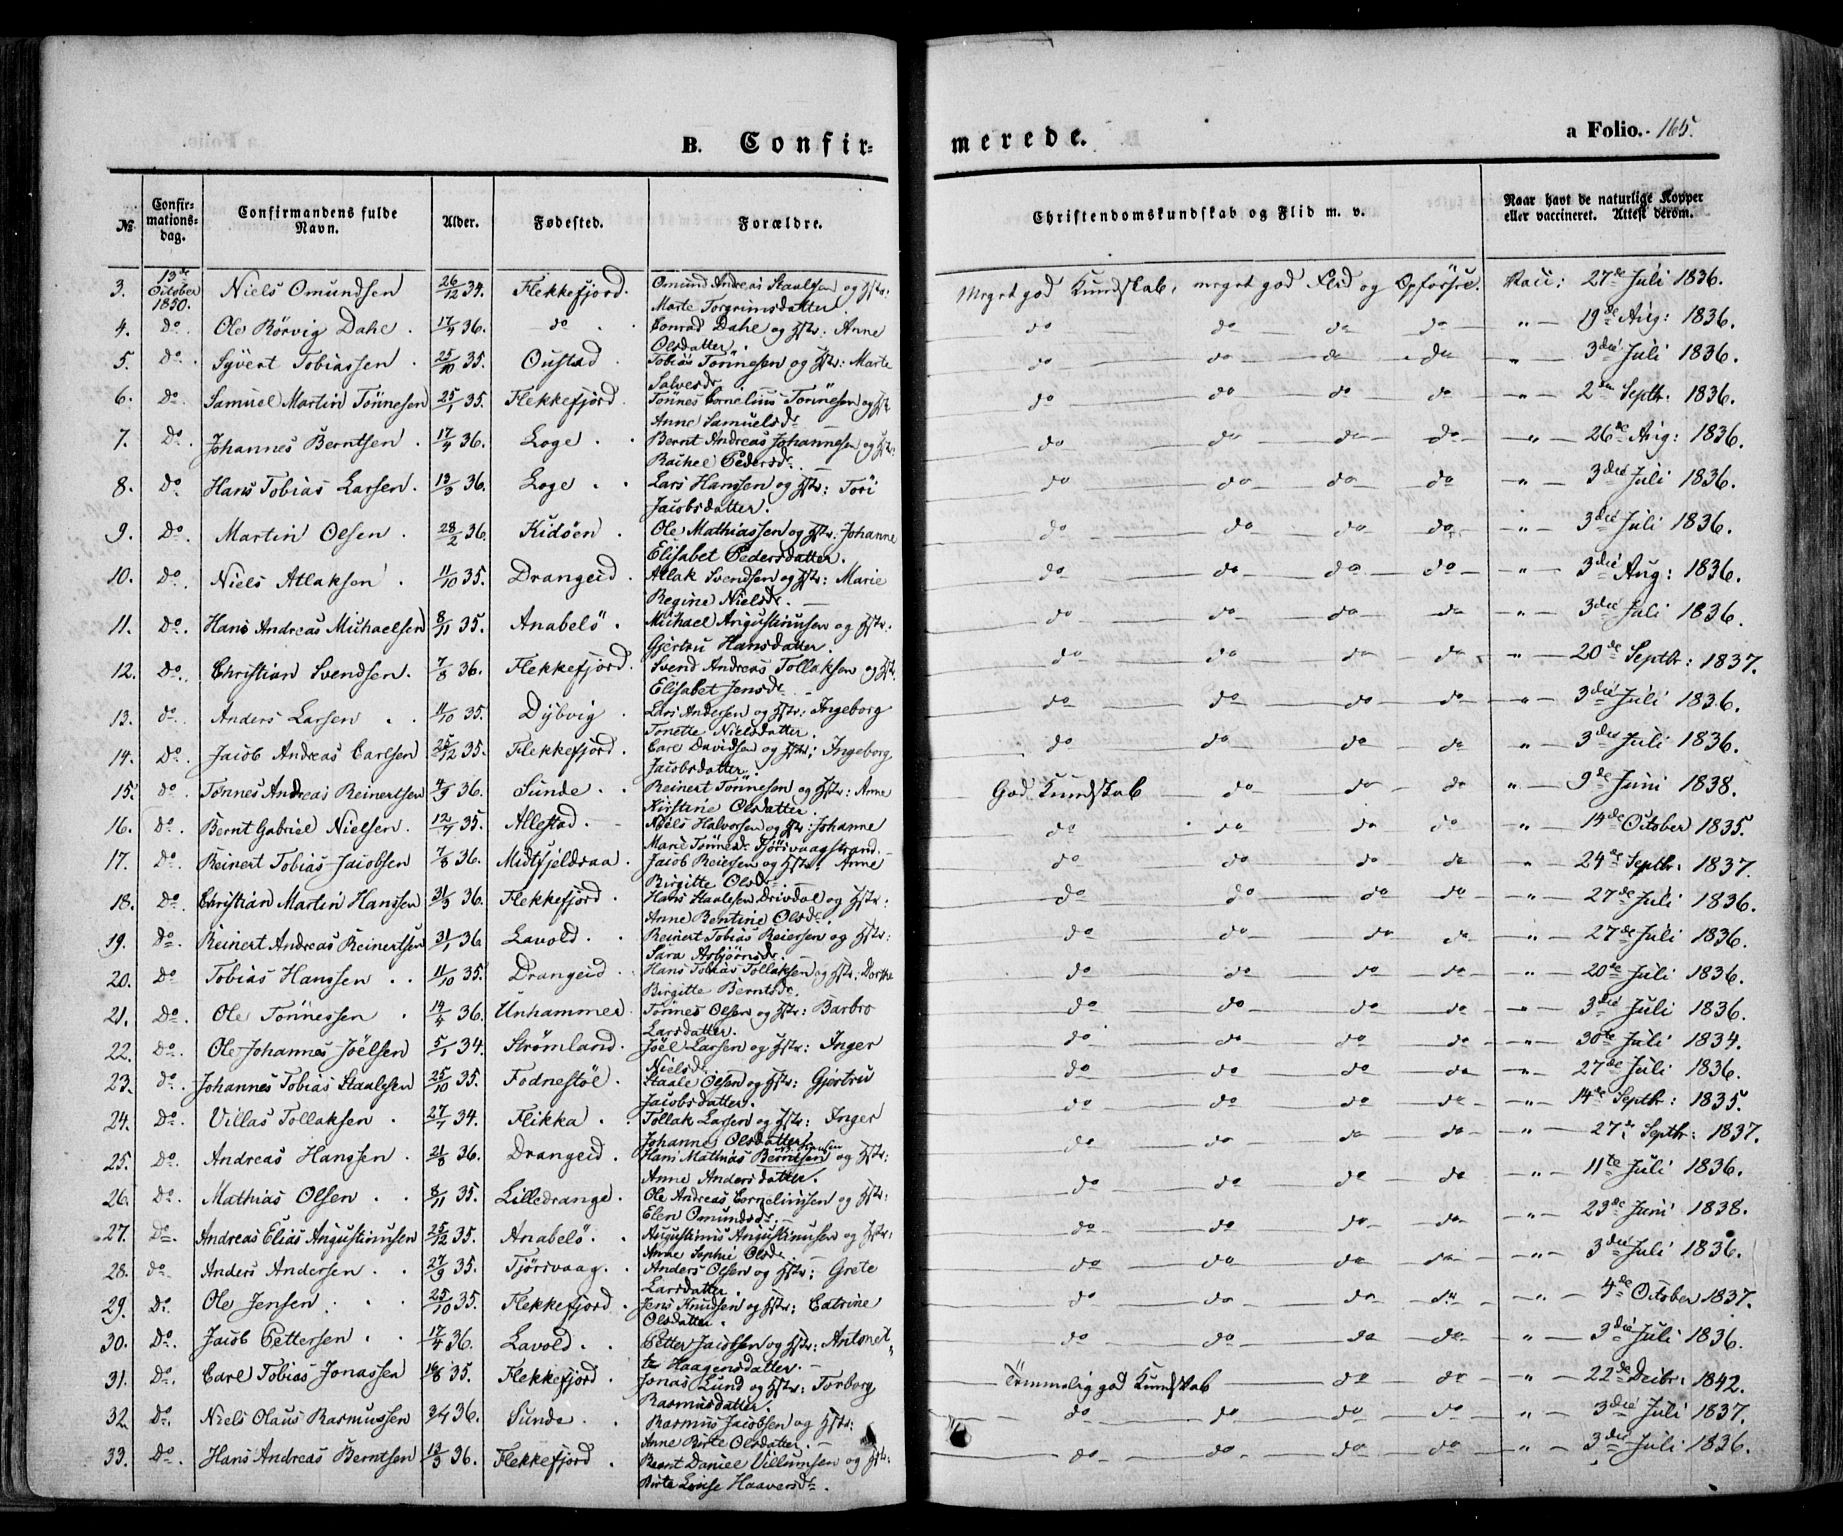 B. Confir-
merede.
a Folio. 165.
№
Confir-
mations-
dag.
Confirmandens fulde
Navn.
Alder.
Fødested.
Forældre.
Christendomskundskab og Flid m. v.
Naar havt de naturlige Kopper
eller vaccineret. Attest derom.
3. 13de October 1850. Niels Omundsen 26/12 34. Flekkefjord. Omund Andreas Staalesen og Hstr: Meget god Kundskab, meget god Flid og Opførsel. Vacc: 27de Juli 1836.
Marte Torgrimsdatter.
4. do Ole Rørvig Dahl. 17/4 36. do Conrad Dahl og Hstr: Anne do do do do " 19de Aug: 1836.
Olsdatter.
5. do Syvert Tobiassen 25/10 35. Oustad Tobias Tönnesen og Hstr: Marte do do do do " 3die Juli 1836.
Salvesdr.
6. Do Samuel Martin Tönnesen 25/1 35. Flekkefjord. Tönnes Cornelius Tönnesen og Hstr do do do do " 2den Septbr: 1836.
Anne Samuelsdr
7. Do Johannes Berntsen 17/4 36. Loge Bernt Andreas Johannesen og Hstr: do do do do " 26de Aug: 1836.
Rachel Pedersdr.
8. Do Hans Tobias Larsen. 19/3 36. Loge Lars Hanssen og Hstr: Tori do do do do " 3die Juli 1836.
Jacobsdatter.
9. Do Martin Olsen 28/2 36. Kidöen Ole Mathiassen og Hstr: Johanne do do do do " 3die Juli 1836.
Elisabet Pedersdatter.
10. Do Niels Atlaksen 11/10 35. Drangeid Atlak Svendsen og Hstr: Marie do do do do " 3die Aug: 1836.
Regine Nielsdr.
11. Do Hans Andreas Michaelsen 8/11 35. Anabelö Michael Augustinusen og Hstr. do do do do " 3die Juli 1836.
Gjertru Hansdatter.
12. Do Christian Svendsen. 7/8 36. Flekkefjord. Svend Andreas Tollaksen og Hstr. do do do do " 20de Septbr: 1837.
Elisabet Jensdr.
13. do Anders Larsen 11/10 35. Dybvig Lars Andersen og Hstr: Ingeborg do do do do " 3die Juli 1836.
Tonette Nielsdatter.
14. Do Jacob Andreas Carlsen 25/12 35. Flekkefjord. Carl Davidsen og Hstr: Ingeborg do do do do " 3die Juli 1836.
Jacobsdatter.
15. do Tönnes Andreas Reinertsen 4/3 36. Sunde Reinert Tönnesen og Hstr: Anne God Kundskab do do do " 9de Juni 1838.
Kirstine Olsdatter.
16. Do Bernt Gabriel Nielsen. 12/7 35. Allestad. Niels Halvorsen og Hstr: Johanne do do do do " 14de October 1835.
Marie Tönnesdr Tjörsvaagstrand.
17. Do Reinert Tobias Jacobsen 7/8 36. Midtfjeldraa. Jacob Reiersen og Hstr: Anne do do do do " 24de Septbr: 1837.
Birgitte Olsdr
18. Do Christian Martin Hanssen 31/3 36. Flekkefjord. Hans Staalesen Drivdal og Hstr: do do do do " 27de Juli 1836.
Anne Bentine Olsdr.
19. Do Reinert Andreas Reinertsen 31/1 36 Lavold. Reinert Tobias Reiersen og Hstr: do do do do " 27de Juli 1836.
Sara Asbjörnsdr.
20. Do Tobias Hanssen 11/10 35. Drangeid Hans Tobias Tollaksen og Hstr: Dorthe do do do do " 20de Juli 1836.
Birgitte Berntsdr.
21. Do Ole Tönnessen 14/4 36. Unhammer. Tönnes Olsen og Hstr: Barbro do do do do " 3die Juli 1836.
Larsdatter.
22. Do Ole Johannes Joëlsen 5/1 34. Strømland. Joël Larsen og Hstr: Inger do do do do " 30te Juli 1834.
Nielsdr.
23. Do Johannes Tobias Staalesen 25/10 35. Fodnestöl. Staale Olsen og Hstr: Gjertru do do do do " 27de Juli 1836.
Jacobsdatter.
24. Do Villas Tollaksen 27/1 34. Flikka Tollak Larsen og Hstr: Inger do do do do " 14de Septbr: 1835.
Johannes Olsdatter
25. Do Andreas Hanssen 21/8 36. Drangeid Hans Mathias Berntsen og Hstr: do do do do " 27de Septbr: 1837.
Anne Andersdatter.
26. Do Mathias Olsen 8/11 35. Lilledrange. Ole Andreas Corneliussen og Hstr: do do do do " 11te Juli 1836.
Elen Omundsdr.
27. Do Andreas Elias Augustinusen 25/12 35. Anabelö. Augustinus Augustinusen og Hstr: do do do do " 23de Juni 1838.
Anne Sophie Olsdr.
28. do Anders Andersen 27/9 35. Tjörsvaag. Anders Olsen og Hstr: Grete do do do do " 3die Juli 1836.
Larsdatter.
29. Do Ole Jensen 25/10 35. Flekkefjord. Jens Knudsen og Hstr: Catrine do do do do " 4de October 1837.
Olsdatter.
30. Do Jacob Pettersen 17/4 36. Lavold. Petter Jacobsen og Hstr: Antonet- do do do do " 3die Juli 1836.
te Haagensdatter.
31. Do Carl Tobias Jonassen 16/8 35. Flekkefjord. Jonas Lund og Hstr: Torborg Temmelig god Kundskab do do " 22de Decbr: 1842.
Rasmusdatter.
32. Do Niels Olaus Rasmussen 3/4 36. Sunde Rasmus Jacobsen og Hstr: do do do do " 3die Juli 1837.
Anne Birte Olsdatter.
33. Do Hans Andreas Berntsen 13/3 36. Flekkefjord Bernt Daniel Villumsen og Hstr: do do do do " 3die Juli 1836.
Birte Lovise Haaversdr.